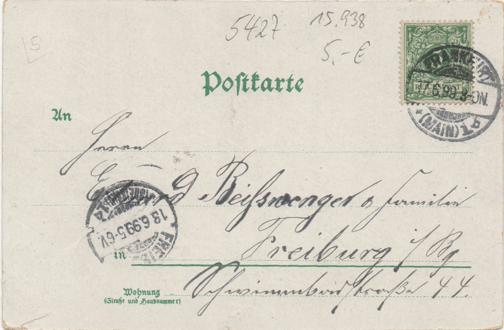 5
5427 15.938
5,-€
Postkarte
FRANKFURT
17.6.99.8-9N.
*(MAIN)1
An
Herrn
D Reisswenger & Familie
18.6.99.5-6V.
FREIB
in Freiburg i/Bg
Wohnung
(Straße und Hausnummer)
Schwimmbadstraße 44.